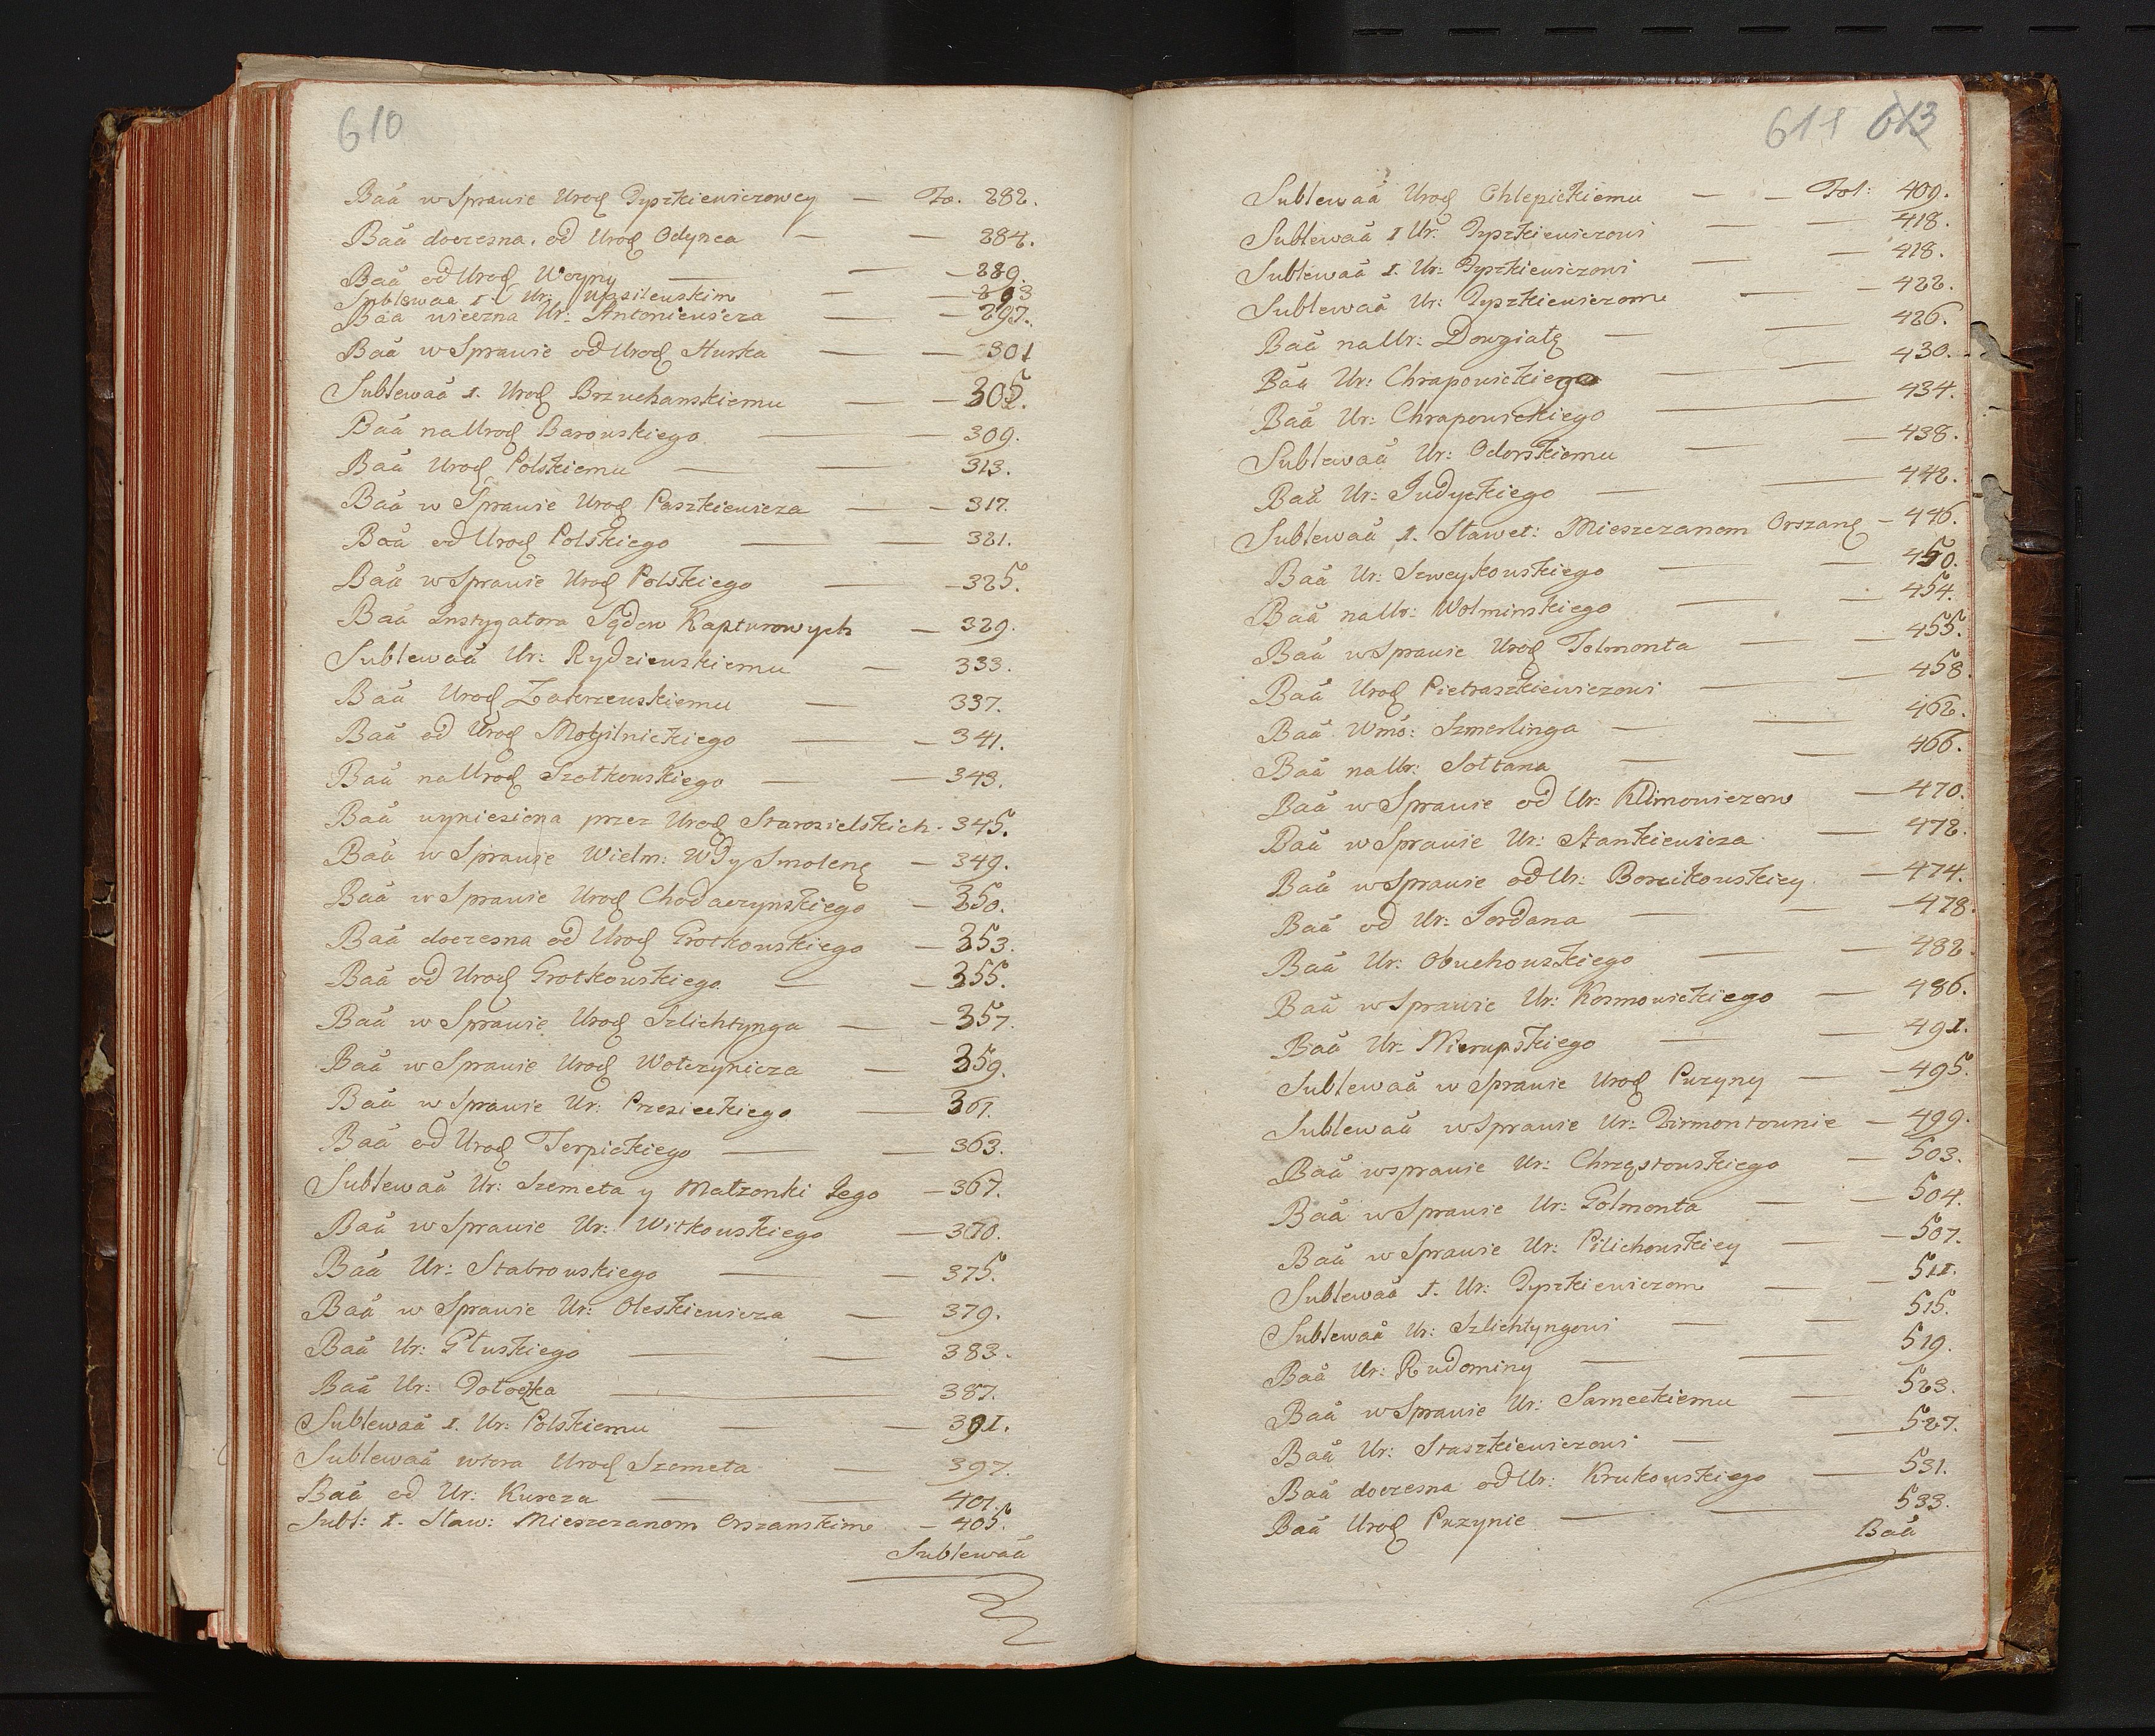 610
Baã w Sprawie Urod Tyszkiewiczowey — Fo. 282.
Baã doczesna od Urod Odynca — — 284.
Baã od Urod Woyny — — 289.
Sublewaã 1. Ur: Wasilewskim — — 293
Baã wieczna Ur: Antoniewicza — — 297.
Baã w Sprawie od Urod Hurka — — 301
Sublewaã 1. Urod Brzuchanskiemu — — 305.
Baã na Urod Barowskiego — — 309.
Baã Urod Polskiemu — — 313.
Baã w Sprawie Urod Paszkiewicza — — 317.
Baã od Urod Polskiego — — 321.
Baã w Sprawie Urod Polskiego — — 325.
Baã Instygatora Sądow Kapturowych — 329.
Sublewaã Ur: Rydziewskiemu — 333.
Baã Urod Zakrzewskiemu — 337.
Baã od Urod Mogilnickiego — — 341.
Baã na Urod Szotkowskiego — — 343.
Baã wyniesiona przez Urod Starosielskich - 345.
Baã w Sprawie Wielm: Wdy Smoleng — 349.
Baã w Sprawie Urod Chodaczynskiego — 350.
Baã doczesna od Urod Grotkowskiego — 353.
Baã od Urod Grotkowskiego — — 355.
Baã w Sprawie Urod Szlichtynga — — 357.
Baã w Sprawie Urod Wołczynicza — 359.
Baã w Sprawie Ur: Przesieckiego — 361.
Baã od Urod Terpickiego — — 363.
Sublewaã Ur: Szemeta y Małzonki Jego — 367.
Baã w Sprawie Ur: Witkowskiego — 370.
Baã Ur: Stabrowskiego — — 375.
Baã w Sprawie Ur: Oleskiewicza — 379.
Baã Ur: Głuskiego — — 383.
Baã Ur: — 387.
Sublewaã 1. Ur: Polskiemu — — 391.
Sublewaã wtora Urod Szemeta — 397.
Baã od Ur: Kurcza — — 401.
Subl: 1. Staw: Mieszczanom Orszanskim — 405.
Sublewaã
611 613
Sublewaã Urod Chlepickiemu — — Fol: 409.
Sublewaã 1 Ur: Tyszkiewiczowi — — 418.
Sublewaã 1. Ur: Tyszkiewiczowi — — 418.
Sublewaã Ur: Tyszkiewiczom — — 422.
Baã na Ur: Dowgiałę — — 426.
Baã Ur: Chrapowickiego — — 430.
Baã Ur: Chrapowickiego — 434.
Sublewaã Ur: Odorskiemu — — 438.
Baã Ur: Judyckiego — — 442.
Sublewaã 1. Stawet: Mieszczanom Orszang — 446.
Baã Ur: Szweykowskiego — — 450.
Baã na Ur: Wolminskiego — — 454.
Baã w Sprawie Urod Tolmonta — — 455.
Baã Urod Pietraszkiewiczowi — — 458.
Baã Wmo: Szmerlinga — — 462.
Baã na Ur: Sołtana — — 466.
Baã w Sprawie od Ur: Klimowiczow — 470.
Baã w Sprawie Ur: Stankiewicza — 472.
Baã w Sprawie od Ur: Borcikowskiey — 474.
Baã od Ur: Jordana — — 478.
Baã Ur: Obuchowskiego — — 482.
Baã w Sprawie Ur: Kosmowickiego — 486.
Baã Ur: Nierupskiego — — 491.
Sublewaã w Sprawie Urod Puzyny — — 495.
Sublewaã w Sprawie Ur: Dirmontownie — 499.
Baã w sprawie Ur: Chrząstowskiego — 503.
Baã w Sprawie Ur: Golmonta — — 504.
Baã w Sprawie Ur: Pilichowskiey — — 507.
Sublewaã 1. Ur: Tyszkiewiczom — — 511.
Sublewaã Ur: Szlichtyngowi — — 515.
Baã Ur: Rudominy — — 519.
Baã w Sprawie Ur: Sarneckiemu — 523.
Baã Ur: Staszkiewiczowi — — 527.
Baã doczesna od Ur: Krukowskiego — 531.
Baã Urod Puzynie — — 533.
Baã